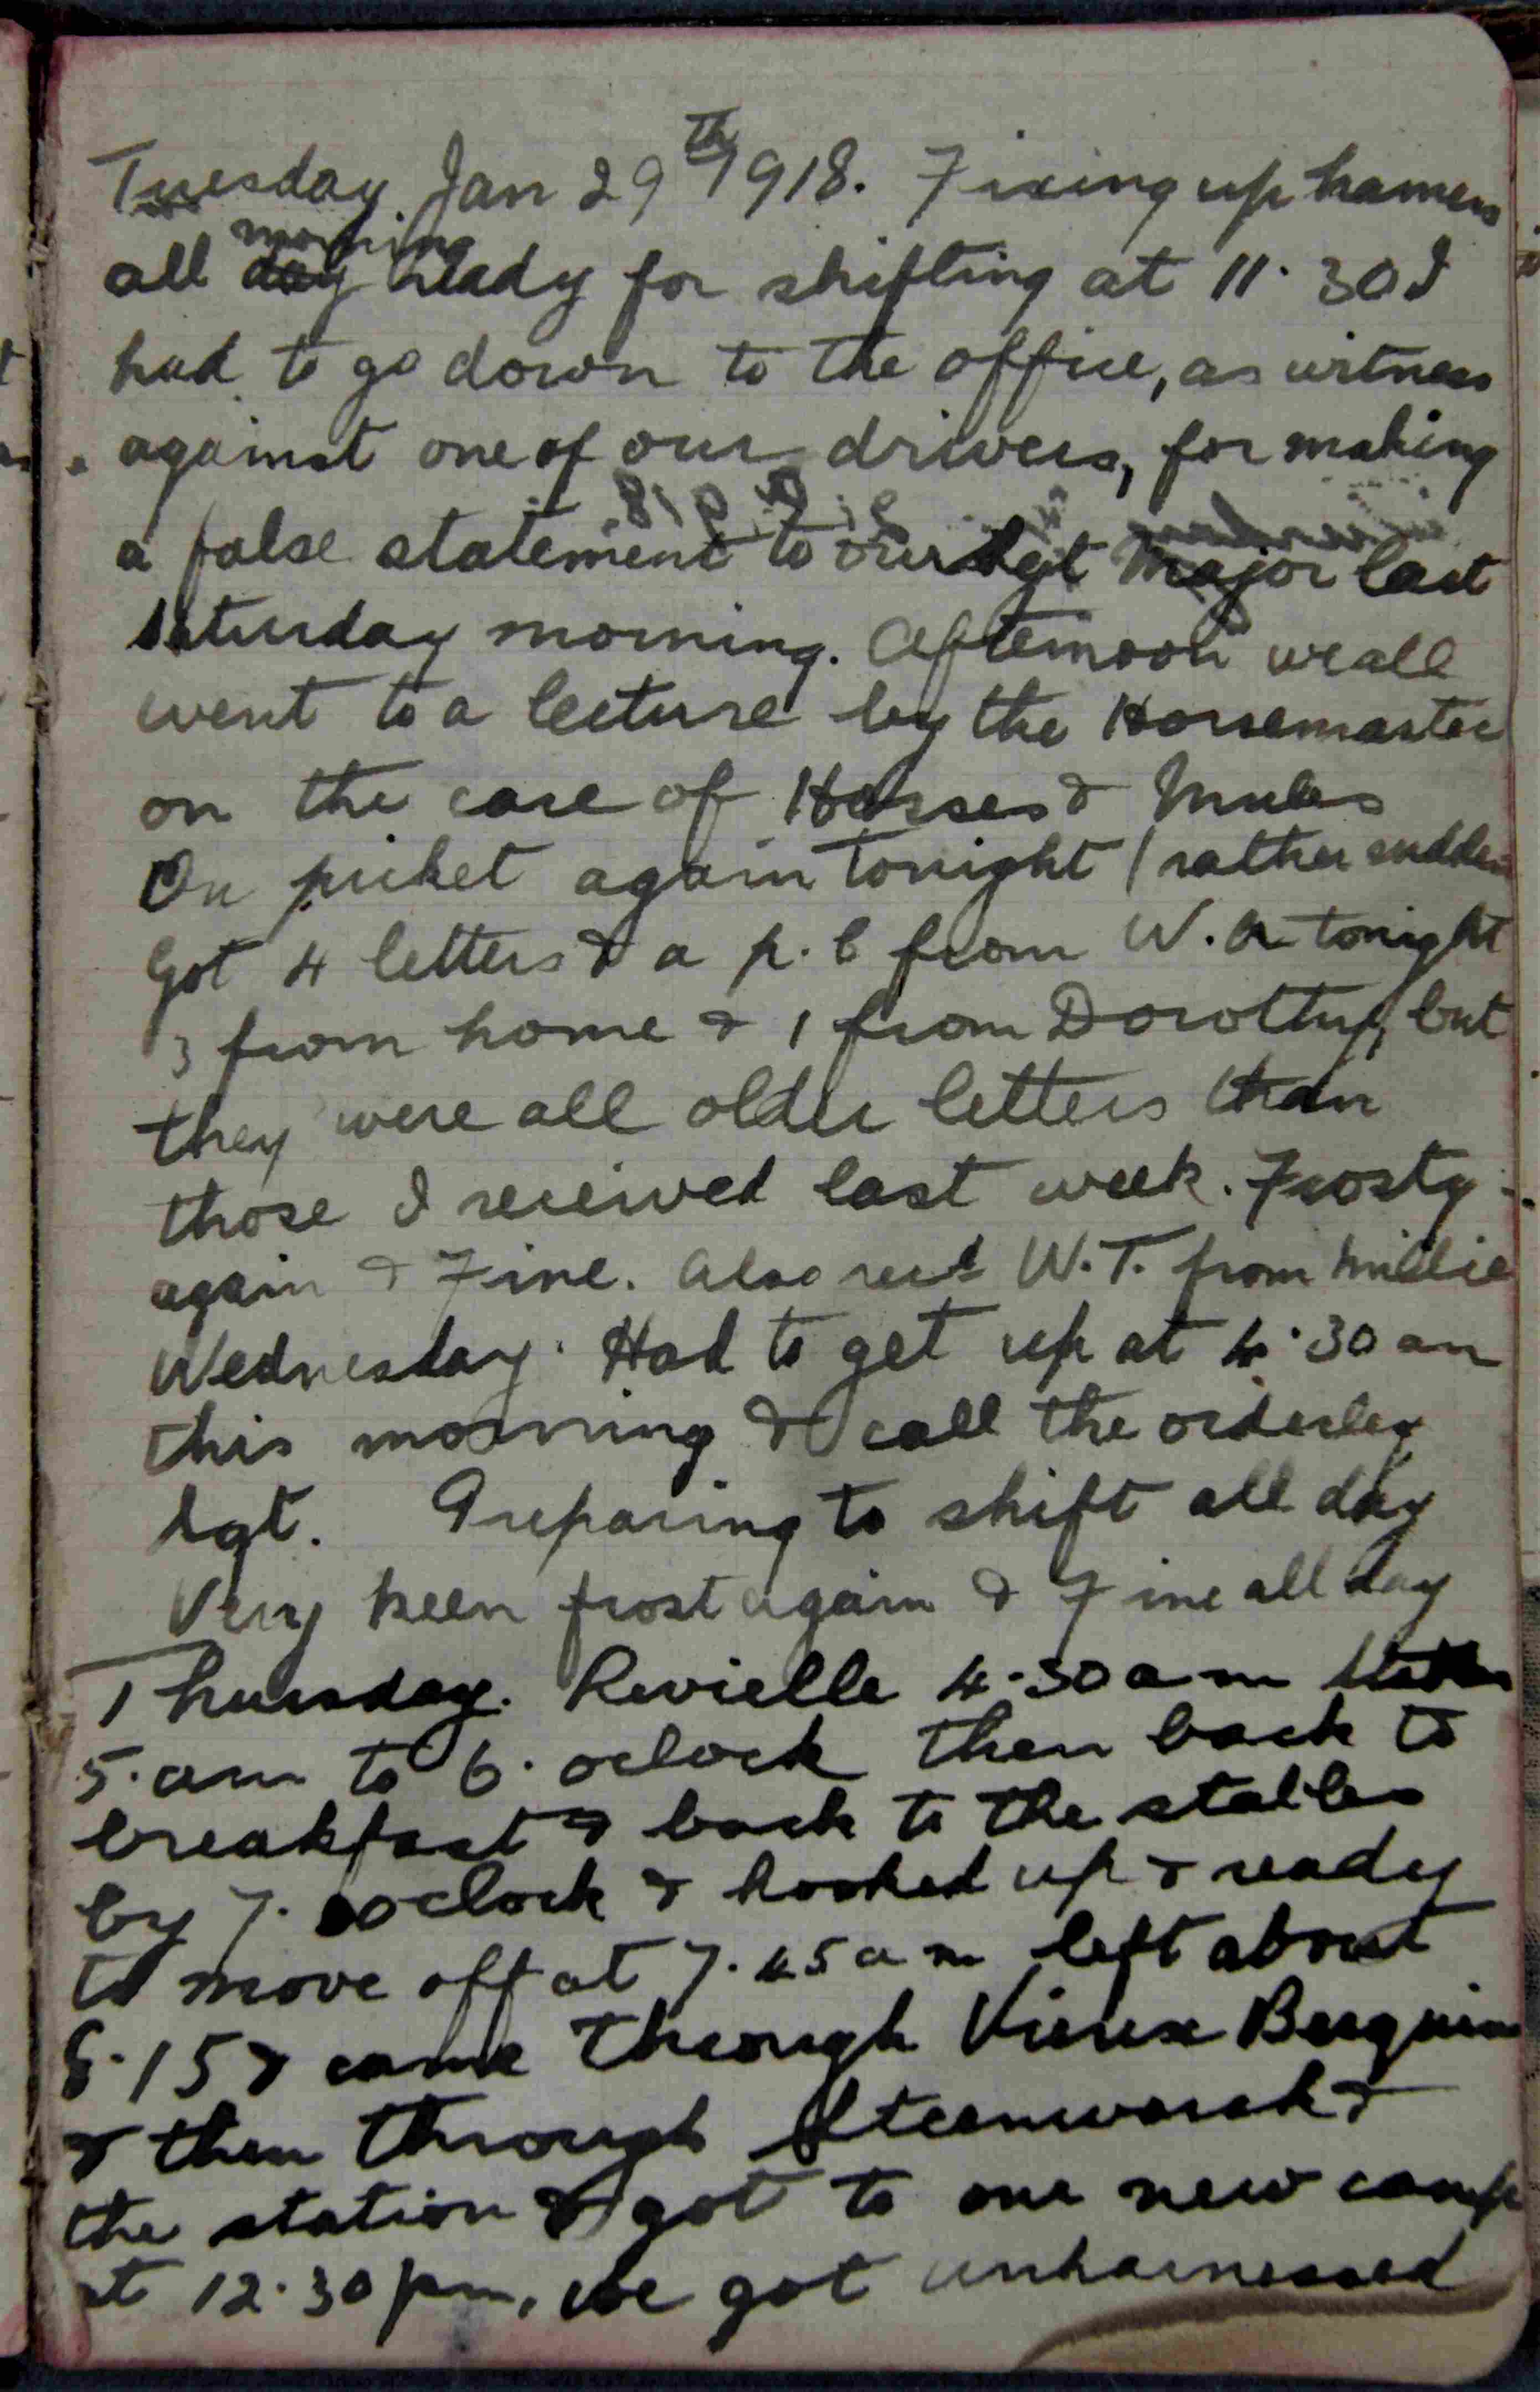 Tuesday. Jan 29th 1918. Fixing up harness
all day morning ready for shifting at 11.30 I
had to go down to the office, as witness
against one of our drivers, for making
a false statement to our Sgt Major last
Saturday morning. Afternoon we all
went to a lecture by the Horsemaster
on the care of Horses & Mules
On picket again tonight (rather sudden
Got 4 letters & a p.c from W.A tonight
3 from home & 1 from Dorothy, but
they were all older letters than
those I received last week. Frosty
again & Fine. Also recd W.T. from Millie
Wednesday. Had to get up at 4.30 am
this morning & call the orderley
Sgt. Preparing to shift all day
Very keen frost again & Fine all day
Thursday. Revielle 4.30 am
5. am to 6. oclock then back to
breakfast & back to the stables
by 7. oclock & hooked up & ready
to move off at 7.45 am left about
8.15 & came through Vieux Berquin
& then through Steenwerck &
the station & got to our new camp
at 12.30 pm, we got unharnessed